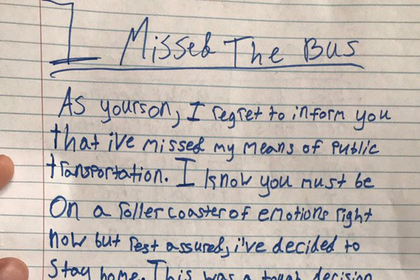 I Missed The Bus
As yourson, I regret to inform you
that i've missed my means of public
transportation. I know you must be
on a roller coaster of emotions right
now but rest assured, i've decided to
stay home. This was a tough decision